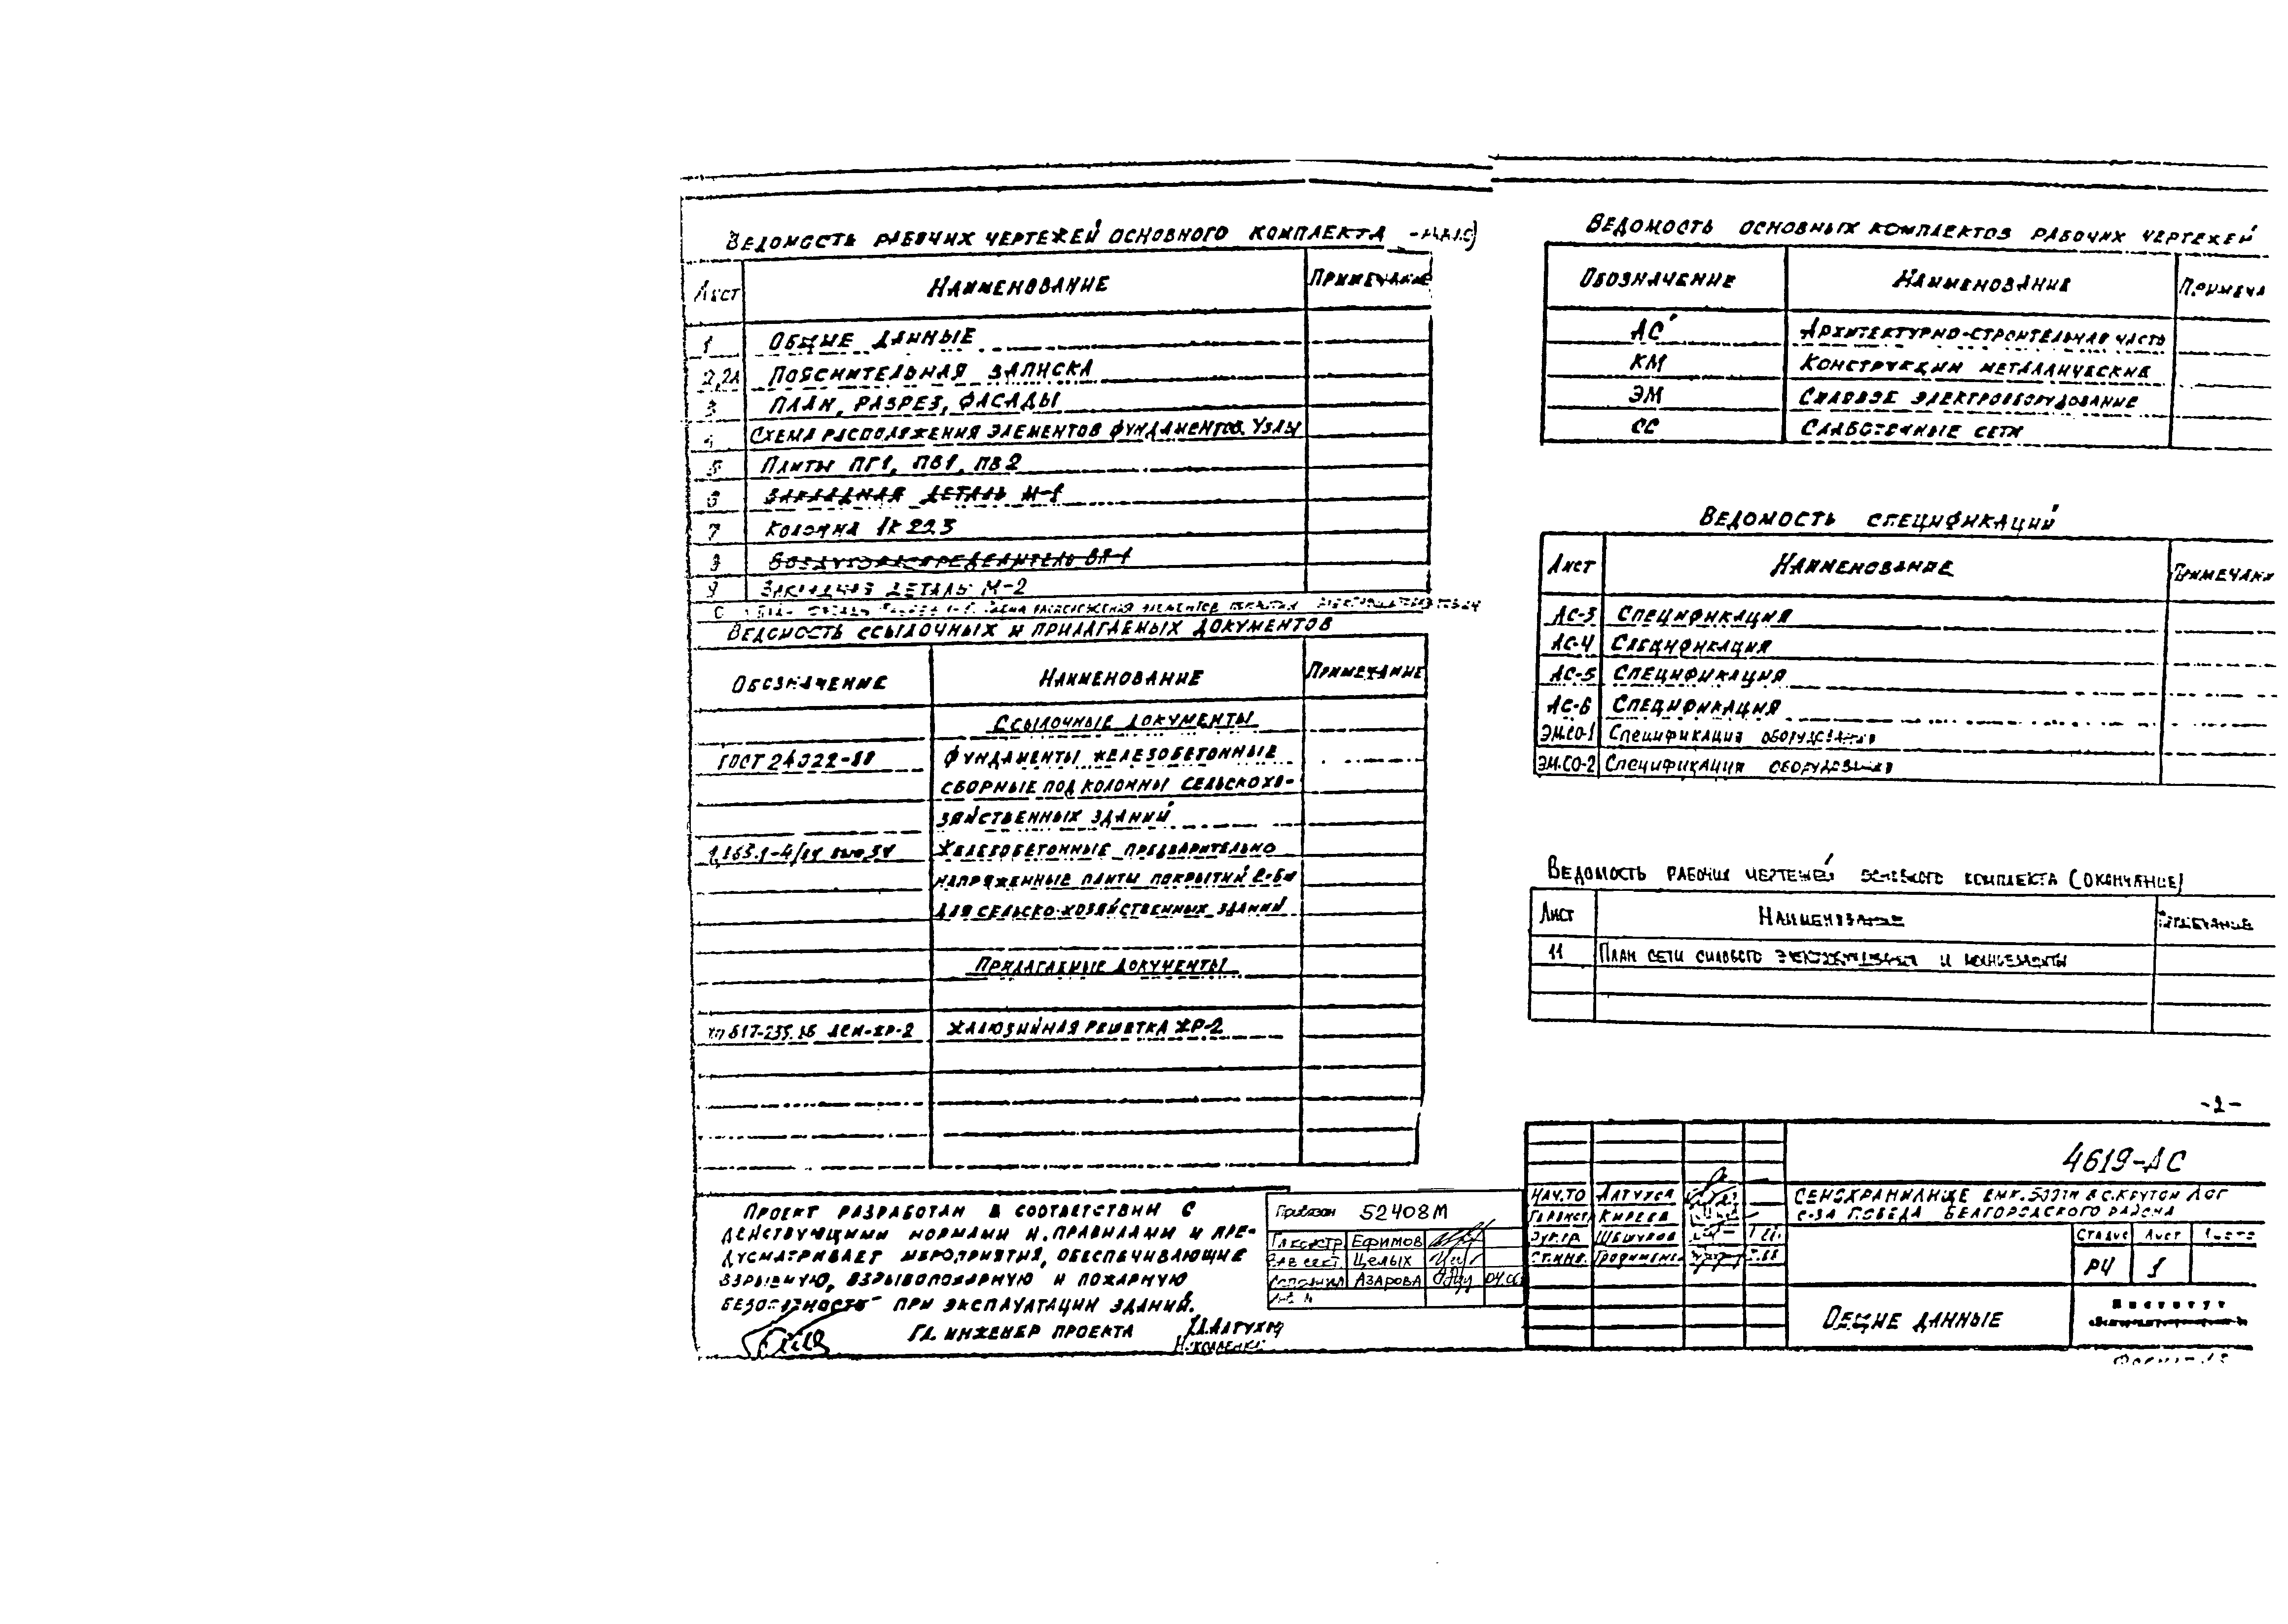 Ведомость рабочих чертежей основного комплекта
Лист Наименование Примечание
1 Общие данные
2,2А Пояснительная записка
3 План, разрез, фасады
4 Схема расположения элементов фундаментов. Узлы
5 Плиты ПГ1, ПВ1, ПВ2
6 Закладная деталь М-1
7 Колонна 1К22.3
8 Воздухораспределитель ВП-1
9 Закладная деталь М-2
Схема расположения элементов покрытия
Ведомость ссылочных и прилагаемых документов
Обозначение Наименование Примечание
Ссылочные документы
ГОСТ 24022-80 Фундаменты железобетонные
сборные под колонны сельскохо-
зяйственных зданий
Железобетонные предварительно
напряженные плиты покрытий 2-6м
для сельско-хозяйственных зданий
Прилагаемые документы
Жалюзийная решетка ЖР-2
Проект разработан в соответствии с
действующими нормами и правилами и пре-
дусматривает мероприятия, обеспечивающие
взрывную, взрывопожарную и пожарную
безопасность при эксплуатации зданий.
Гл. инженер проекта
Привязан 52408М
Гл констр Ефимов
Зав сект. Целых
Исполнил Азарова
Инв. N
Ведомость основных комплектов рабочих чертежей
Обозначение Наименование Примеча
АС Архитектурно-строительная часть
КМ Конструкции металлические
ЭМ Силовое электрооборудование
СС Слаботочные сети
Ведомость спецификаций
Лист Наименование Примечани
АС-3 Спецификация
АС-4 Спецификация
АС-5 Спецификация
АС-6 Спецификация
ЭМ.СО-1 Спецификация оборудования
ЭМ.СО-2 Спецификация оборудования
Ведомость рабочих чертежей основного комплекта (окончание)
Лист Наименование Примечание
11 План сети силового электрооборудования и
-2-
4619-АС
Нач.ТО
Гл.констр Киреева
Рук.гр. Шешуков
Ст.инж. Трофименко
Сенохранилище емк. 500тн в с.Крутой Лог
с-за Победа Белгородского района
Стадия Лист Листо
РЧ 1
Общие данные
Институт